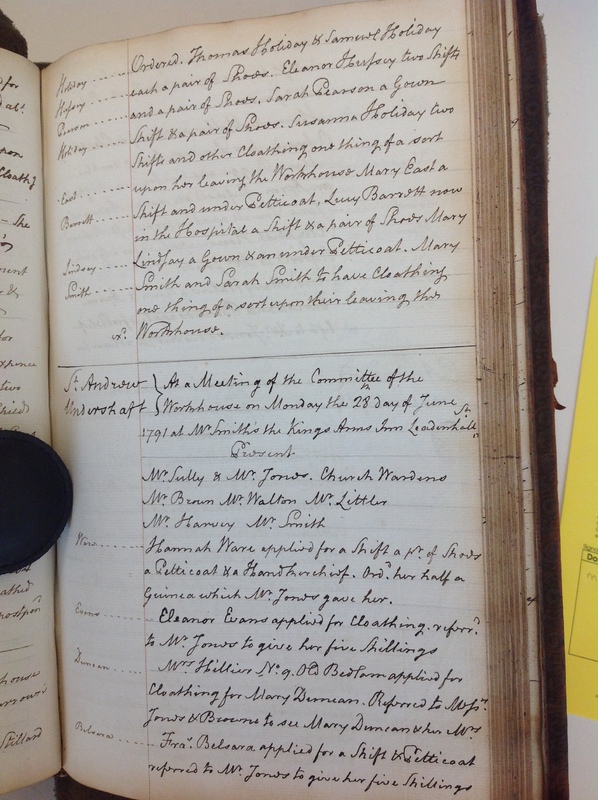 Holiday ..... Ordered. Thomas Holiday & Samuel Holiday
Hussey ..... each a pair of Shoes. Eleanor Hussey two Shifts
Pearson ..... and a pair of Shoes. Sarah Pearson a Gown
Holiday ..... Shift & a pair of Shoes. Susanna Holiday two
Shifts and other Cloathing one thing of a sort
East ..... upon her leaving the Workhouse Mary East a
Barrett ..... Shift and under Petticoat, Lucy Barrett now
in the Hospital a Shift & a pair of Shoes Mary
Lindsay ..... Lindsay a Gown & an under Petticoat. Mary
Smith ..... Smith and Sarah Smith to have Cloathing
one thing of a sort upon their leaving the
exd. Workhouse.
St. Andrew } At a Meeting of the Committee of the
Undershaft } Workhouse on Monday the 28th day of June
1791 at Mr Smith's the Kings Arms Inn Leadenhall St.
Present
Mr. Sully & Mr. Jones. Church Wardens
Mr. Brown Mr. Walton Mr. Littler
Mr. Harvey Mr. Smith
Ware ..... Hannah Ware applied for a Shift a pr. of Shoes
a Petticoat & a Handkerchief. Ordd. her half a
Guinea which Mr. Jones gave her.
Evans ..... Eleanor Evans applied for Cloathing. referrd.
to Mr. Jones to give her five Shillings
Duncan ..... Mrs. Hillier No. 9. Old Bedlam applied for
Cloathing for Mary Duncan. Referred to Messrs.
Jones & Browne to see Mary Duncan & her Mrs
Belsara ..... Fras. Belsara applied for a Shift & Petticoat
referred to Mr. Jones to give her five Shillings